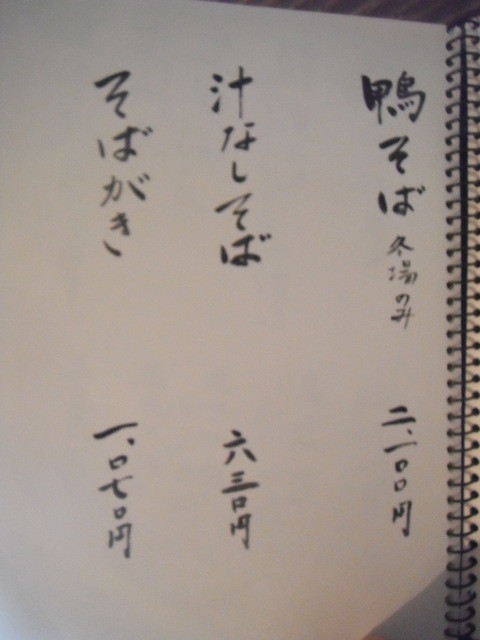 鴨そば 冬場のみ 二、一〇〇円
汁なしそば 六三〇円
そばがき 一、〇七〇円